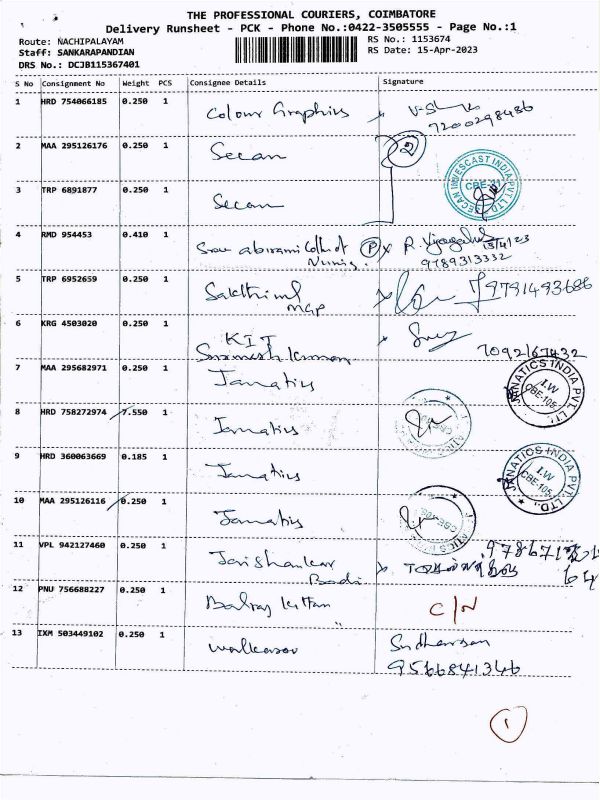 THE PROFESSIONAL COURIERS, COIMBATORE
Delivery Runsheet - PCK - Phone No.:0422-3505555 - Page No.:1
Route: NACHIPALAYAM
RS No.: 1153674
Staff: SANKARAPANDIAN
RS Date: 15-Apr-2023
DRS No.: DCJB115367401
S No Consignment No Weight PCS Consignee Details Signature
1 HRD 754066185 0.250 1 Colour Graphics
7200298486
2 MAA 295126176 0.250 1 Secan 2
SECAN INVESCAST INDIA PVT LTD. CBE-31
3 TRP 6891877 0.250 1 Secan
4 RMD 954453 0.410 1 P x R.
15/4/23
9789313332
5 TRP 6952659 0.250 1 Sakthiml 9791493686
MGP
6 KRG 4503020 0.250 1 KIT
7092167432
7 MAA 295682971 0.250 1 Janatics
JANATICS INDIA PVT. LTD. I.W CBE-105.
8 HRD 758272974 7.550 1 Janatics
9 HRD 360063669 0.185 1 Janatics
JANATICS INDIA PVT. LTD. I.W CBE-105.
10 MAA 295126116 0.250 1 Janatics
11 VPL 942127460 0.250 1 Jaishankar
12 PNU 756688227 0.250 1 C/N
13 IXM 503449102 0.250 1 Sudharsan
9566841346
1